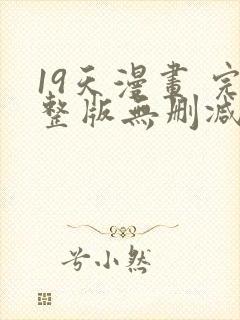 19天漫畫 完
整版無刪減
兮小然